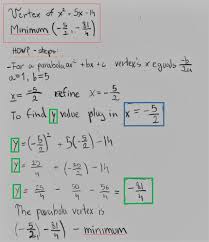 Vertex of x² + 5x - 14
Minimum (-5/2, -81/4)
HOW? - steps:
-For a parabola ax² + bx + c vertex's x equals -b/2a
a=1, b=5
x = -5/2 refine x = -5/2
To find y value plug in x = -5/2
y = (-5/2)² + 5(-5/2) - 14
y = - (-50/2) - 14
y = 25/4 - 50/4 - 56/4 = -81/4
The parabola vertex is
(-5/2, -81/4) - minimum